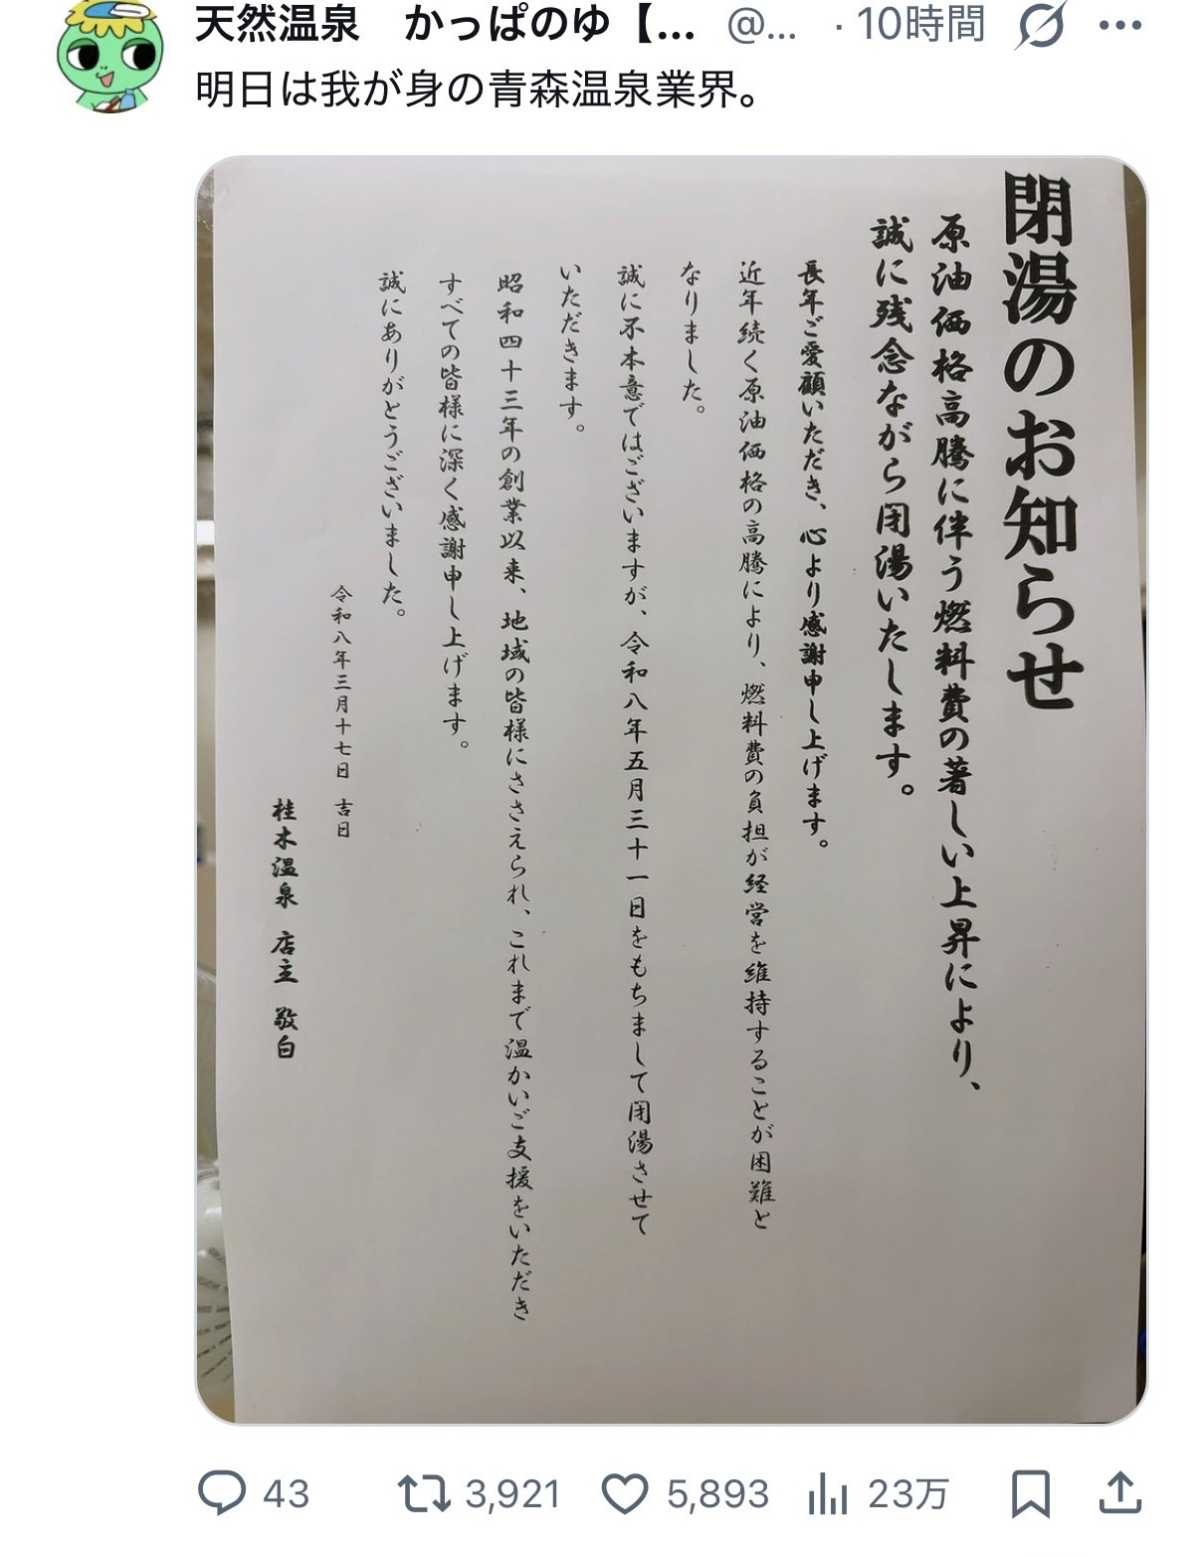 天然温泉　かっぱのゆ【... @... · 10時間
明日は我が身の青森温泉業界。
閉湯のお知らせ
原油価格高騰に伴う燃料費の著しい上昇により、
誠に残念ながら閉湯いたします。
長年ご愛顧いただき、心より感謝申し上げます。
近年続く原油価格の高騰により、燃料費の負担が経営を維持することが困難と
なりました。
誠に不本意ではございますが、令和八年五月三十一日をもちまして閉湯させて
いただきます。
昭和四十三年の創業以来、地域の皆様にささえられ、これまで温かいご支援をいただき
すべての皆様に深く感謝申し上げます。
誠にありがとうございました。
令和八年三月十七日 吉日
桂木温泉 店主 敬白
43 3,921 5,893 23万